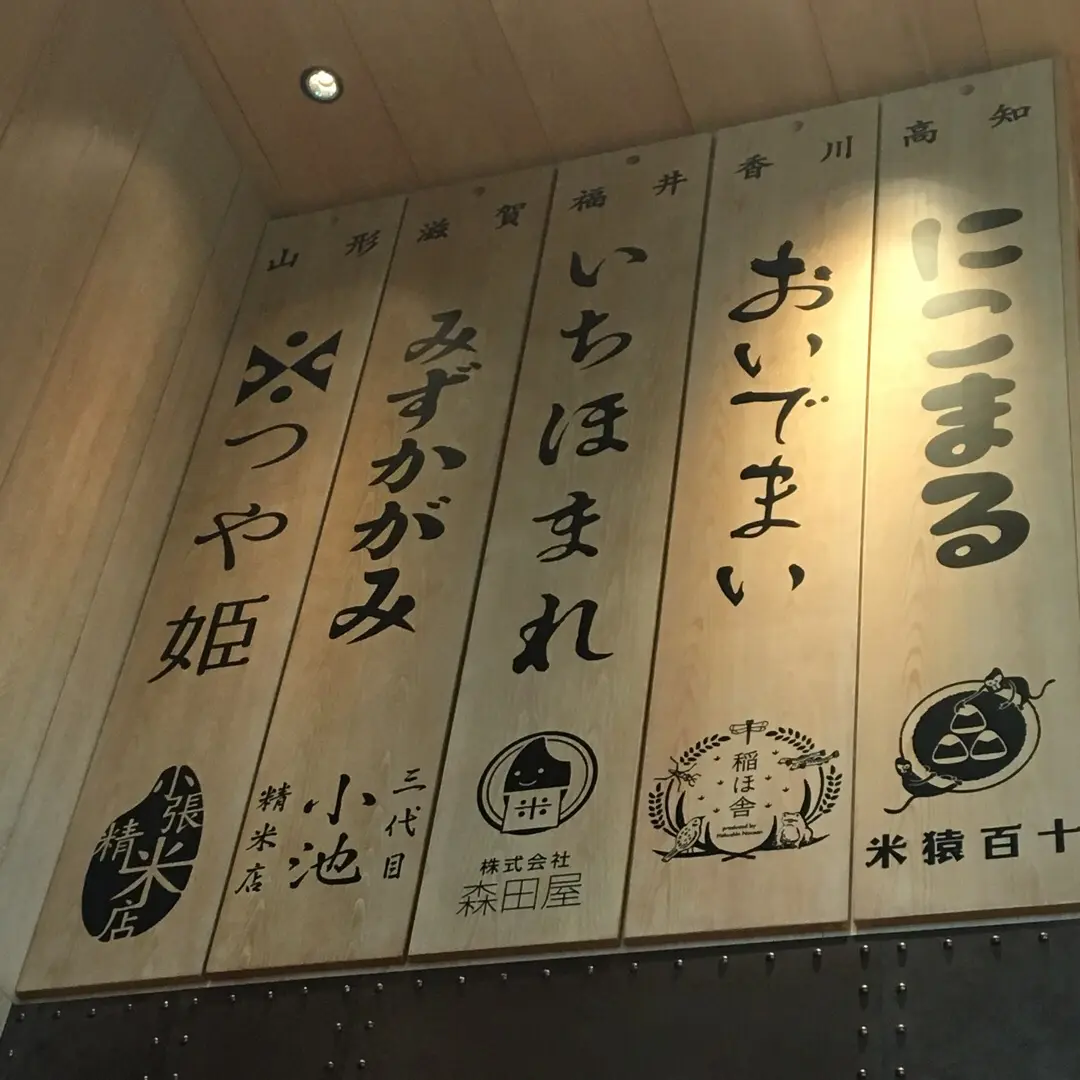 高知
にこまる
米猿百十
香川
おいでまい
稲ほ舎
produced by
福井
いちほまれ
米
株式会社
森田屋
滋賀
みずかがみ
三代目
小池
精米店
山形
つや姫
小張
精米店